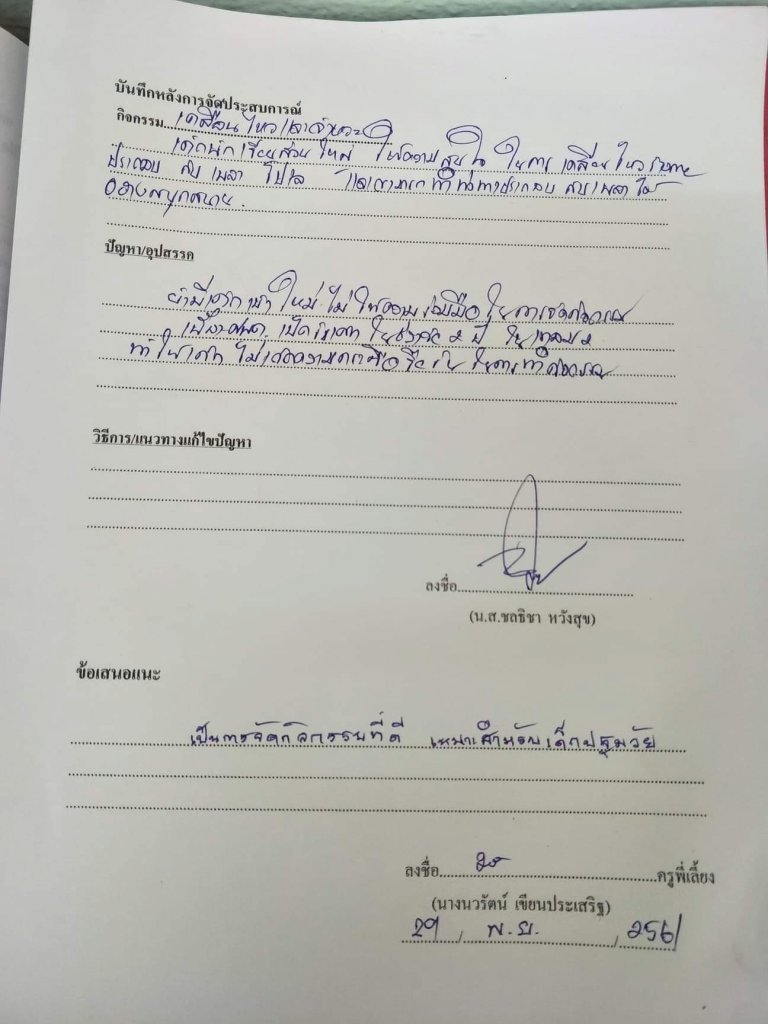 บันทึกหลังการจัดประสบการณ์
กิจกรรม เคลื่อนไหวและจังหวะ
เด็กนักเรียนส่วนใหญ่ ให้ความสนใจ ในการ เคลื่อนไหว
ประกอบ เพลง และสามารถทำท่าทางประกอบ เพลงได้
อย่างสนุกสนาน.
ปัญหา/อุปสรรค
ยังมีเด็ก ใหม่ ไม่ให้ความร่วมมือ ในการจัดกิจกรรม
เนื่องจาก เป็น ใน 2 ปี ใน
ทำให้เด็ก ไม่ ในการทำกิจกรรม
วิธีการ/แนวทางแก้ไขปัญหา
ลงชื่อ
(น.ส.ชลธิชา หวังสุข)
ข้อเสนอแนะ
เป็นการจัดกิจกรรมที่ดี เหมาะสำหรับเด็กปฐมวัย
ลงชื่อ ครูพี่เลี้ยง
(นางนวรัตน์ เขียนประเสริฐ)
29 / พ.ย. / 2561